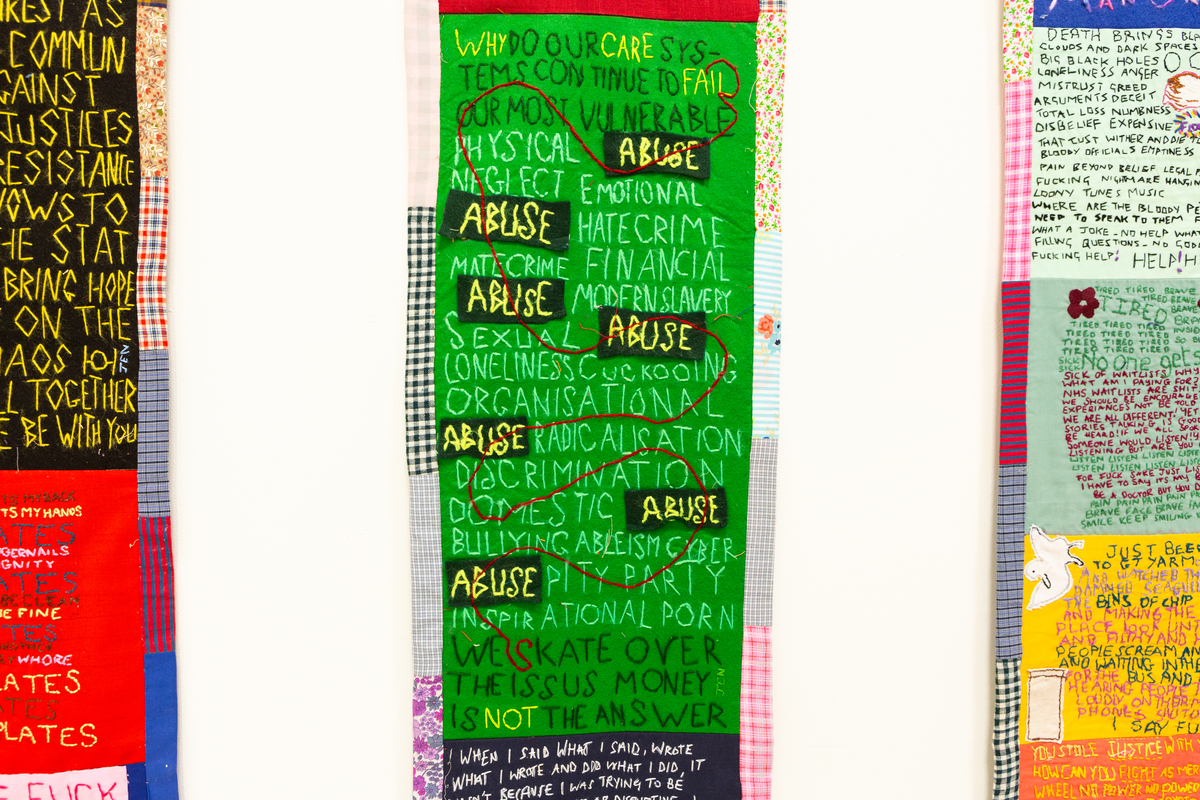 REST AS
COMMUN
GAINST
JUSTICES
RESISTANCE
VOWS TO
HE STAT
BRING HOPE
ON THE
HAOS to
JEN
TOGETHER
BE WITH YOU
MY BACK
TS MY HANDS
ATES
GERNAILS
GNITY
ATES
BE CLEAN
BE FINE
ATES
WHORE
LATES
ATES
PLATES
FUCK
WHY DO OUR CARE SYS-
TEMS CONTINUE TO FAIL
OUR MOST VULNERABLE
PHYSICAL ABUSE
NEGLECT EMOTIONAL
ABUSE HATE CRIME
MATE CRIME FINANCIAL
ABUSE MODERN SLAVERY
SEXUAL ABUSE
LONELINESS CUCKOOING
ORGANISATIONAL
ABUSE RADICALISATION
DISCRIMINATION
DOMESTIC ABUSE
BULLYING ABLEISM CYBER
ABUSE PITY PARTY
INSPIRATIONAL PORN
WE SKATE OVER
THE ISSUS MONEY
IS NOT THE ANSWER
JEN
I WHEN I SAID WHAT I SAID, WROTE
WHAT I WROTE AND DID WHAT I DID, IT
WASN'T BECAUSE I WAS TRYING TO BE
DEATH BRINGS BLA
CLOUDS AND DARK SPACES
BIG BLACK HOLES
LONELINESS ANGER
MISTRUST GREED
ARGUMENTS DECEIT
TOTAL LOSS NUMBNESS
DISBELIEF EXPENSIVE
THAT JUST WITHER AND DIE
BLOODY OFFICIALS EMPTINESS
PAIN BEYOND BELIEF LEGAL
FUCKING NIGHTMARE HANGIN
LOONY TUNES MUSIC
WHERE ARE THE BLOODY PE
NEED TO SPEAK TO THEM
WHAT A JOKE - NO HELP WHAT
FILLING QUESTIONS - NO GOD
FUCKING HELP! HELP! H
TIRED TIRED BRAVE
TIRED BRAVE
TIRED BRE
TIRED TIRED TIRED
TIRED TIRED TIRED SO
TIRED TIRED TIRED
SICK No one gets
SICK OF WAITLISTS WHY
WHAT AM I PAYING FOR?
NHS WAITLISTS ARE SHIT
WE SHOULD BE ENCOURAGE
EXPERIANCES NOT BE TOLD
WE ARE ALL DIFFERENT! YET
STORIES TALKING IS GOOD
BE HEARD! IF WE ALL SPOK
SOMEONE WOULD LISTEN!
LISTENING BUT ARE YOU
LISTEN LISTEN LISTEN LISTEN
FOR FUCK SAKE JUST LIS
I HAVE TO SAY ITS MY B
BE A DOCTOR BUT YOU D
PAIN PAIN PAIN PAIN
BRAVE FACE BRAVE FA
SMILE KEEP SMILING
JUST BEEN
TO GT YARM
AND WATCHED TH
THE BINS OF CHIP
AND MAKING THE
PEOPLE SCREAM AN
AND WAITING IN THE
FOR THE BUS AND
HEARING PEOPLE
LOUDLY ON THERE
PHONES
I SAY FU
YOU STOLE JUSTICE WITH
HOW CAN YOU FIGHT AS MER
WHEEL NO POWER NO POWER